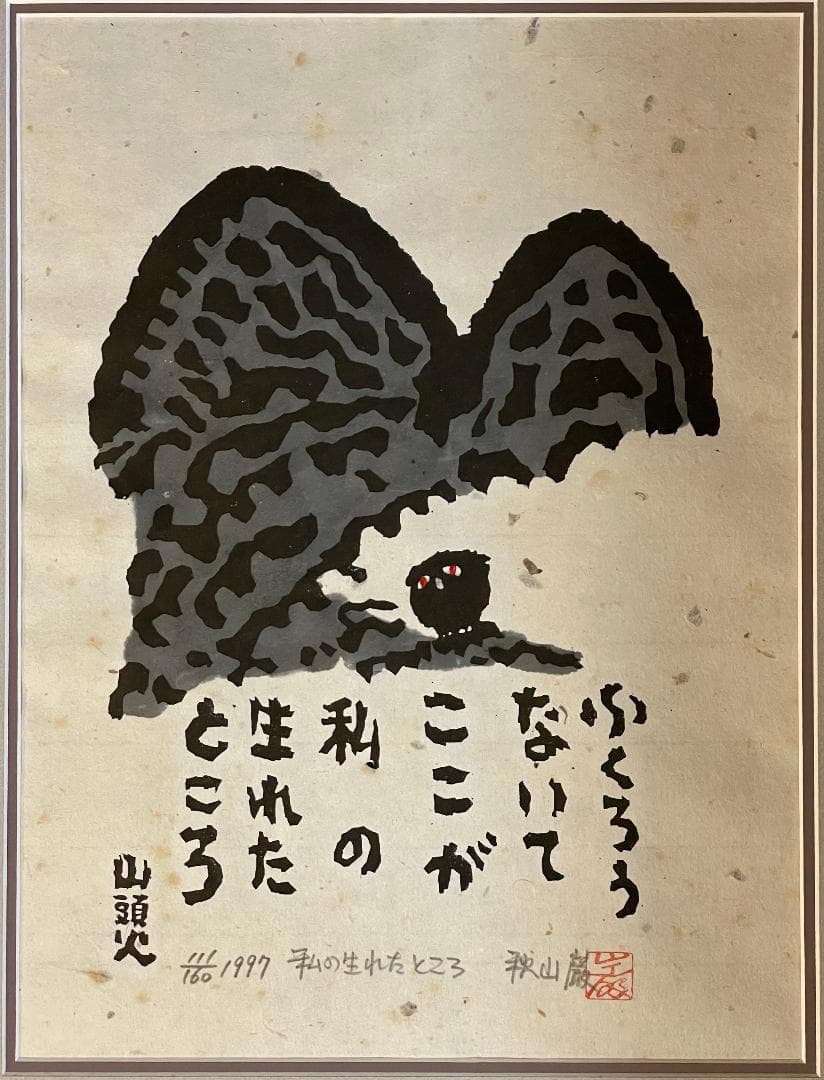 ふくろう
ないて
ここが
私の
生れた
ところ
山頭火
111/160 1997 私の生れたところ 秋山巌